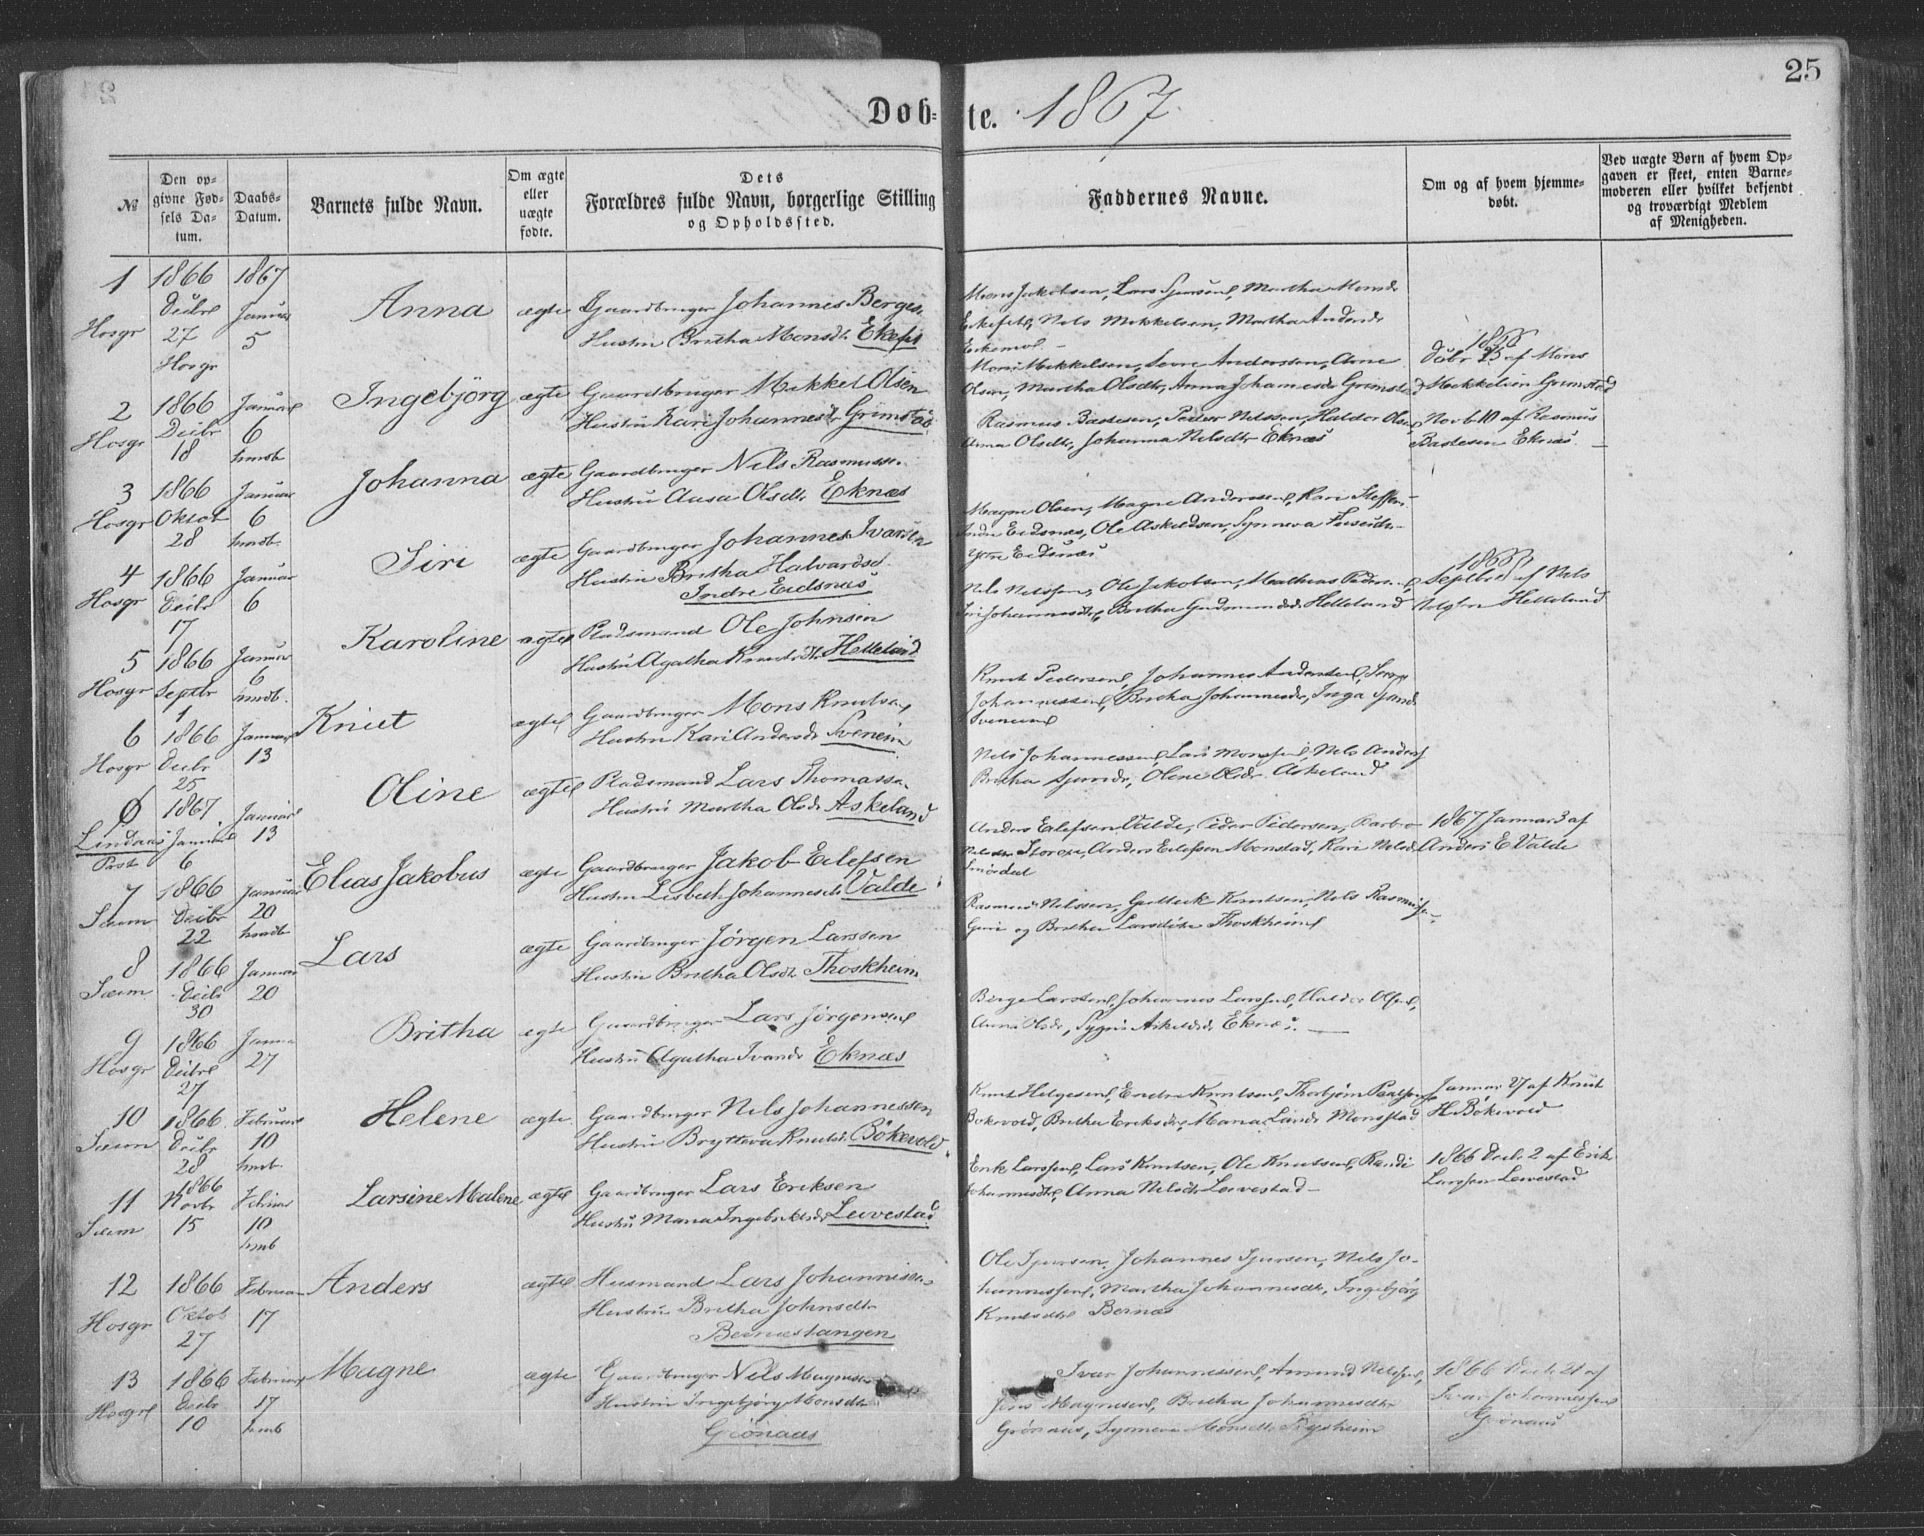 25
Døb-te. 1867
№
Den opgivne Fødsels Datum.
Daabs-Datum.
Barnets fulde Navn.
Om ægte eller uægte fødte.
Dets Forældres fulde Navn, borgerlige Stilling og Opholdssted.
Faddernes Navne.
Om og af hvem hjemmedøbt.
Ved uægte Børn af hvem Opgaven er skeet, enten Barnemoderen eller hvilket bekjendt og troværdigt Medlem af Menigheden.
1 Hosgr
1866 Decbr 27 Hosgr
1867 Januar 5
Anna
ægte
Gaardbruger Johannes Berges.
Hustru Britha Monsdtr Ekefet
Mons Jakobsen, Lars Sjursen, Martha Monsdr
Ekefet, Nils Mikkelsen, Martha Andersdr
2 Hosgr
1866 Decbr 18
Januar 6 hmdb
Ingebjörg
ægte
Gaardbruger Mikkel Olsen
Hustru Kari Johannesdtr Grimstad
Mons Mikkelsen, Andersen, Arne
Olsen, Martha Olsdtr, Anna Johannesdr Grimstad
1866 Decbr 23 af Mons
Mikkelsen Grimstad
3 Hosgr
1866 Oktob 28
Januar 6 hmdb.
Johanna
ægte
Gaardbruger Nils Rasmussen
Hustru Olsdtr Eknæs
Rasmus Bastesen, Peder Nilssen, Haldor Olsen
Anna Olsdtr, Johanna Nilsdtr Eknæs
Novb 10 af Rasmus
Bastesen Eknæs.
4 Hosgr
1866 Decbr 17
Januar 6
Siri
ægte
Gaardbruger Johannes Ivarsen
Hustru Britha Halvardsd.
Indre Eidsnæs
Magne Olsen, Magne Andersen, Kari Steffen
Indre Eidsnæs, Ole Askeldsen, Synneva
Ytre Eidsnæs
5 Hosgr
1866 Septbr 1
Januar 6 hmdb.
Karoline
ægte
Pladsmand Ole Johnsen
Hustru Agatha Knudsdtr Helleland
Nils Nilssen, Ole Jakobsen, Mathias Peders
Siri Johannesdtr, Britha Gudmundsdr Helleland
1866 Septbr af Nils
Helleland
6 Hosgr
1866 Decbr 25
Januar 13
Knut
ægte
Gaardbruger Mons Knutsen
Hustru Kari Andersdr Sveneim
Knut Pedersen, Johannes Andersen,
Johannessen, Britha Johannesdr, Inga
Sveneim
Lindaas Præst
1867. Januar 6
Januar 13
Oline
ægte
Pladsmand Lars Thomassen
Hustru Martha Olsdr Askeland
Nils Johannessen, Lars Monssen, Nils Anders
Britha Sjursdr, Oline Olsdr Askeland
7 Sæim
1866 Decbr 22
Januar 20 hmdb
Elias Jakobus
ægte
Gaardbruger Jakob Eilefsen
Hustru Lisbeth Johannesdtr Valde
Anders Eilefsen Valde, Peder Pedersen,
Anders Eilefsen Monstad, Kari Nilsdr
1867 Januar 3 af
Anders E Valde
8 Sæim
1866 Decbr 30
Januar 20
Lars
ægte
Gaardbruger Jörgen Larssen
Hustru Britha Olsdtr Thoskheim
Rasmus Nilssen, Gutteik Knutsen, Nils Rasmussen
Guri og Britha Larsdötre Thoskheim
9 Hosgr
1866 Decbr 27
Januar 27
Britha
ægte
Gaardbruger Lars Jörgensen
Hustru Agatha Ivarsdr Eknæs
Birge Larssen, Johannes Larssen, Haldor Olsen,
Anna Olsdr, Sygni Askeldsdr Eknæs.
10 Sæim
1866. Decbr 28
Februar 10 hmb.
Helene
ægte
Gaardbruger Nils Johannessen
Hustru Brytteva Knutsd. Bökevold
Knut Helgesen, Endre Knutsen, Thorbjörn Paalsen
Bokevold, Britha Eriksdtr, Maria Larsdr Monstad
Januar 27 af Knut
H. Bökevold
11 Sæim
1866 Novbr 15
Februar 10 hmb
Larsine Malene
ægte
Gaardbruger Lars Eriksen
Hustru Maria Ingebriktsdr Leivestad
Erik Larssen, Lars Knutsen, Ole Knutssen, Randi
Johannesdtr, Anna Nilsdtr Leivestad
1866 Decbr 2 af Erik
Larssen Leivestad
12 Hosgr
1866 Oktob 27
Februar 17
Anders
ægte
Husmand Lars Johannessen
Hustru Britha Johnsdtr
Bernæstangen
Ole Sjursen, Johannes Sjursen, Nils Jo-
hannessen, Martha Johannesdtr, Ingebjörg
Knutsdtr Bernæs
13 Hosgr
1866 Decbr 10
Februar 17 hmb
Magne
ægte
Gaardbruger Nils Magnesen
Hustru Ingebjörg Monsdtr
Grönaas
Ivar Johannessen, Amund Nilssen,
Jens Magnesen, Britha Johannesdtr
Grönaas, Synneva Monsdtr Rysheim
1866 Decbr 21 af
Ivar Johannessen
Grönaas